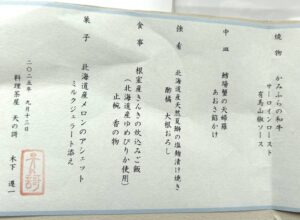 焼物　かみふらの和牛
サーロインロースト
有馬山椒ソース
中皿　鱈場蟹の天婦羅
あおさ餡かけ
強肴　北海道産天然夏鰤の塩麹漬け焼き
酢橘　大根おろし
食事　根室産きんきの炊込みご飯
（北海道産ゆめぴりか使用）
止椀　香の物
菓子　北海道産メロンのアンェット
ミルクジェラート添え
二〇二五年　九月十二日
料理茶屋　天の詩
木下　進一